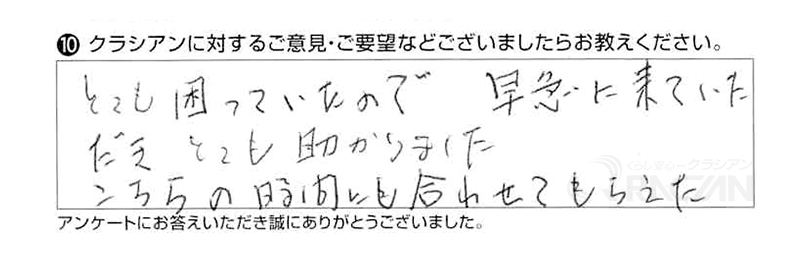 ⑩ クラシアンに対するご意見・ご要望などございましたらお教えください。
とても困っていたので 早急に来ていた
だき とても助かりました
こちらの時間にも合わせてもらえた
くらし安心クラシアン
QRACIAN
アンケートにお答えいただき誠にありがとうございました。